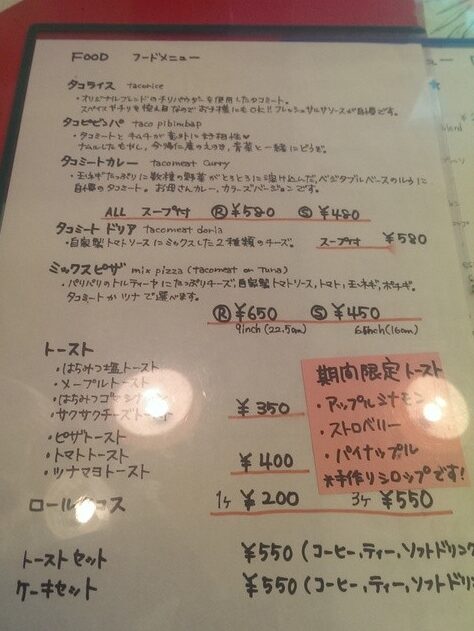 FOOD フードメニュー
タコライス tacorice
・オリジナルブレンドのチリパウダーを使用したタコミート。
スパイスやチリを控え目なのでお子様にもOK!! フレッシュサルサソースが自慢です。
タコビビンバ taco pibimbap
・タコミートとキムチが意外に好相性♥
ナムルしたもやし、今帰仁産のえのき、青菜と一緒にどうぞ。
タコミートカレー tacomeat curry
・玉ネギたっぷりに数種の野菜がとろとろに溶け込んだ、ベジタブルベースのルゥに
自慢のタコミート。お母さんカレー、カラーズバージョンです。
ALL スープ付 Ⓡ ¥580 Ⓢ ¥480
タコミートドリア tacomeat doria
・自家製トマトソースにミックスした2種類のチーズ。 スープ付 ¥580
ミックスピザ mix pizza (tacomeat or Tuna)
・パリパリのトルティーヤにたっぷりチーズ、自家製トマトソース、トマト、玉ネギ、ポテギ。
タコミートかツナで選べます。
Ⓡ ¥650 Ⓢ ¥450
9inch (22.5cm) 6inch (16cm)
トースト
・はちみつ塩トースト
・メープルトースト
・はちみつゴ
・サクサクチーズトースト
¥350
・ピザトースト
・トマトトースト
・ツナマヨトースト
¥400
期間限定トースト
・アップルシナモン
・ストロベリー
・パイナップル
*手作りシロップです!
ロール コス 1ヶ ¥200 3ヶ ¥550
トーストセット ¥550 (コーヒー,ティー,ソフトドリンク
ケーキセット ¥550 (コーヒー,ティー,ソフトドリン